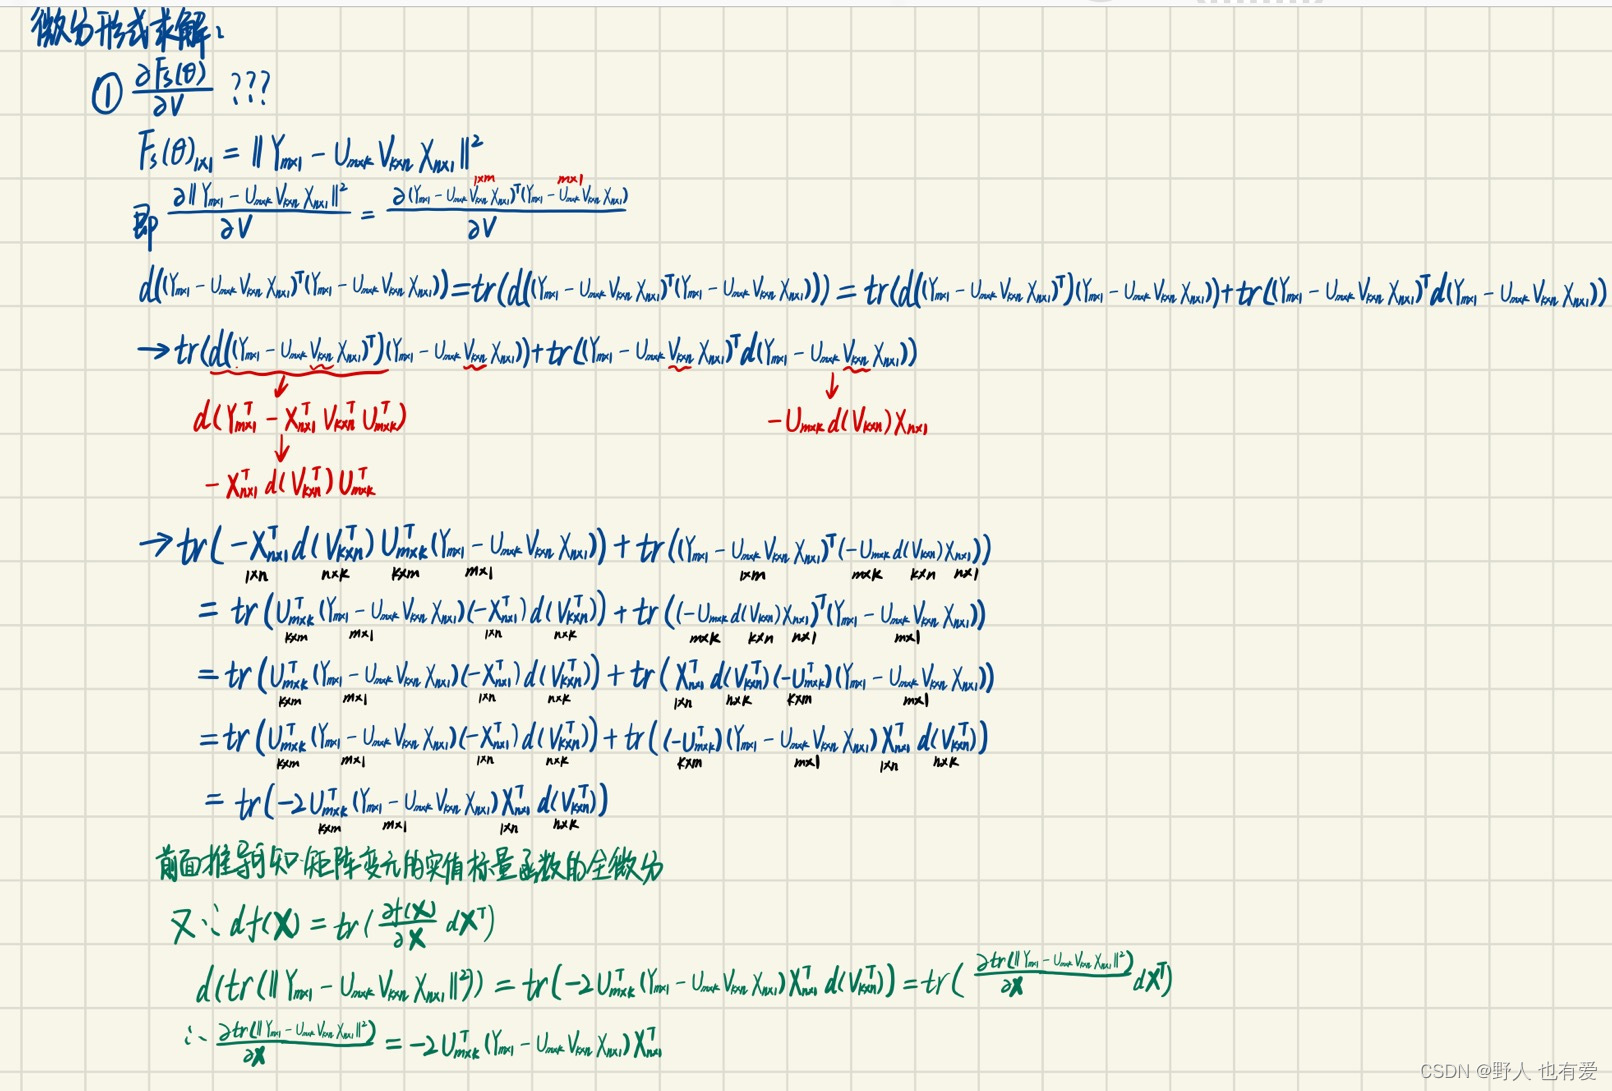 微分形式求解:
① ∂F_s(θ)/∂V ???
F_s(θ)_{1×1} = ‖Y_{m×1} - U_{m×k} V_{k×n} X_{n×1}‖²
1×m m×1
即 ∂‖Y_{m×1} - U_{m×k} V_{k×n} X_{n×1}‖²/∂V = ∂(Y_{m×1} - U_{m×k} V_{k×n} X_{n×1})^T(Y_{m×1} - U_{m×k} V_{k×n} X_{n×1})/∂V
d((Y_{m×1} - U_{m×k} V_{k×n} X_{n×1})^T(Y_{m×1} - U_{m×k} V_{k×n} X_{n×1})) = tr(d((Y_{m×1} - U_{m×k} V_{k×n} X_{n×1})^T(Y_{m×1} - U_{m×k} V_{k×n} X_{n×1}))) = tr(d((Y_{m×1} - U_{m×k} V_{k×n} X_{n×1})^T)(Y_{m×1} - U_{m×k} V_{k×n} X_{n×1})) + tr((Y_{m×1} - U_{m×k} V_{k×n} X_{n×1})^T d(Y_{m×1} - U_{m×k} V_{k×n} X_{n×1}))
→ tr(d((Y_{m×1} - U_{m×k} V_{k×n} X_{n×1})^T)(Y_{m×1} - U_{m×k} V_{k×n} X_{n×1})) + tr((Y_{m×1} - U_{m×k} V_{k×n} X_{n×1})^T d(Y_{m×1} - U_{m×k} V_{k×n} X_{n×1}))
↓ ↓
d(Y^T_{m×1} - X^T_{n×1} V^T_{k×n} U^T_{m×k}) -U_{m×k} d(V_{k×n}) X_{n×1}
↓
- X^T_{n×1} d(V^T_{k×n}) U^T_{m×k}
→ tr(-X^T_{n×1} d(V^T_{k×n}) U^T_{m×k} (Y_{m×1} - U_{m×k} V_{k×n} X_{n×1})) + tr((Y_{m×1} - U_{m×k} V_{k×n} X_{n×1})^T (-U_{m×k} d(V_{k×n}) X_{n×1}))
1×n n×k k×m m×1 1×m m×k k×n n×1
= tr(U^T_{m×k} (Y_{m×1} - U_{m×k} V_{k×n} X_{n×1})(-X^T_{n×1}) d(V^T_{k×n})) + tr((-U_{m×k} d(V_{k×n}) X_{n×1})^T (Y_{m×1} - U_{m×k} V_{k×n} X_{n×1}))
k×m m×1 1×n n×k m×k k×n n×1 m×1
= tr(U^T_{m×k} (Y_{m×1} - U_{m×k} V_{k×n} X_{n×1})(-X^T_{n×1}) d(V^T_{k×n})) + tr(X^T_{n×1} d(V^T_{k×n})(-U^T_{m×k})(Y_{m×1} - U_{m×k} V_{k×n} X_{n×1}))
k×m m×1 1×n n×k 1×n n×k k×m m×1
= tr(U^T_{m×k} (Y_{m×1} - U_{m×k} V_{k×n} X_{n×1})(-X^T_{n×1}) d(V^T_{k×n})) + tr((-U^T_{m×k})(Y_{m×1} - U_{m×k} V_{k×n} X_{n×1}) X^T_{n×1} d(V^T_{k×n}))
k×m m×1 1×n n×k k×m m×1 1×n n×k
= tr(-2U^T_{m×k} (Y_{m×1} - U_{m×k} V_{k×n} X_{n×1}) X^T_{n×1} d(V^T_{k×n}))
k×m m×1 1×n n×k
前面推导可知矩阵变元的实值标量函数的全微分
又∵ df(X) = tr(∂f(X)/∂X dX^T)
d(tr(‖Y_{m×1} - U_{m×k} V_{k×n} X_{n×1}‖²)) = tr(-2U^T_{m×k} (Y_{m×1} - U_{m×k} V_{k×n} X_{n×1}) X^T_{n×1} d(V^T_{k×n})) = tr(∂tr(‖Y_{m×1} - U_{m×k} V_{k×n} X_{n×1}‖²)/∂X dX^T)
∴ ∂tr(‖Y_{m×1} - U_{m×k} V_{k×n} X_{n×1}‖²)/∂X = -2U^T_{m×k} (Y_{m×1} - U_{m×k} V_{k×n} X_{n×1}) X^T_{n×1}
CSDN @野人 也有爱